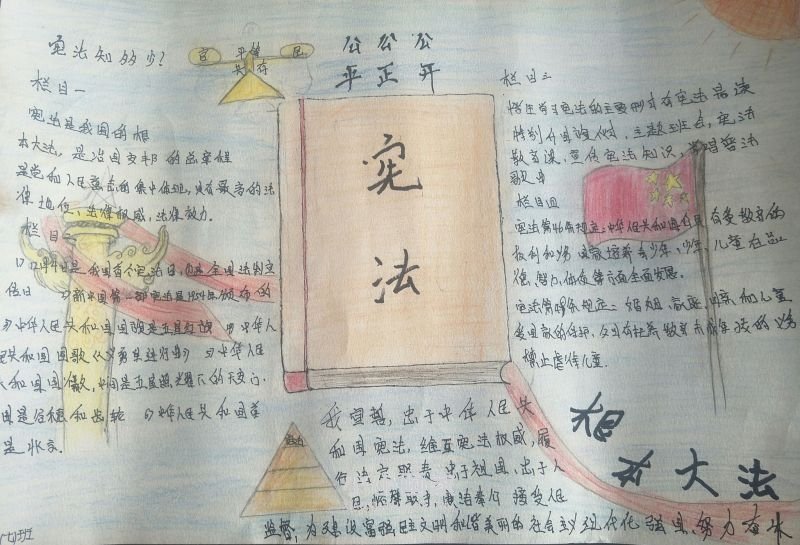 宪法知多少?
官 平等 民
共存
公公公
平正开
栏目一
宪法是我国的根
本大法,是治国安邦的总章程
是党和人民意志的集中体现,具有最高的法
律地位,法律权威,法律效力。
栏目二
12月4日是我国首个宪法日,也是全国法制宣
传日 新中国第一部宪法是1954年颁布的
中华人民共和国国旗是五星红旗 中华人
民共和国国歌《义勇军进行曲》 中华人民
共和国国徽,中间是五星照耀下的天安门,
周围是谷穗和齿轮 中华人民共和国首
都是北京.
宪
法
栏目三
学生学习宪法的主要形式有宪法晨读
特别升旗仪式,主题班会,宪法
知识,宣传宪法知识
歌曲
栏目四
宪法第46条规定:中华人民共和国公民有受教育的
权利和义务 国家培养青少年,少年,儿童在品
德,智力,体质等方面全面发展。
宪法第49条规定:婚姻,家庭,母亲和儿童
受国家的保护,父母有抚养教育未成年子女的义务
禁止虐待儿童.
我宣誓,忠于中华人民共
和国宪法,维护宪法权威,履
行法定职责 忠于祖国,忠于人
民,恪尽职守,廉洁奉公 接受人民
监督,为建设富强民主文明和谐美丽的社会主义现代化强国努力奋斗
根
本大法
班